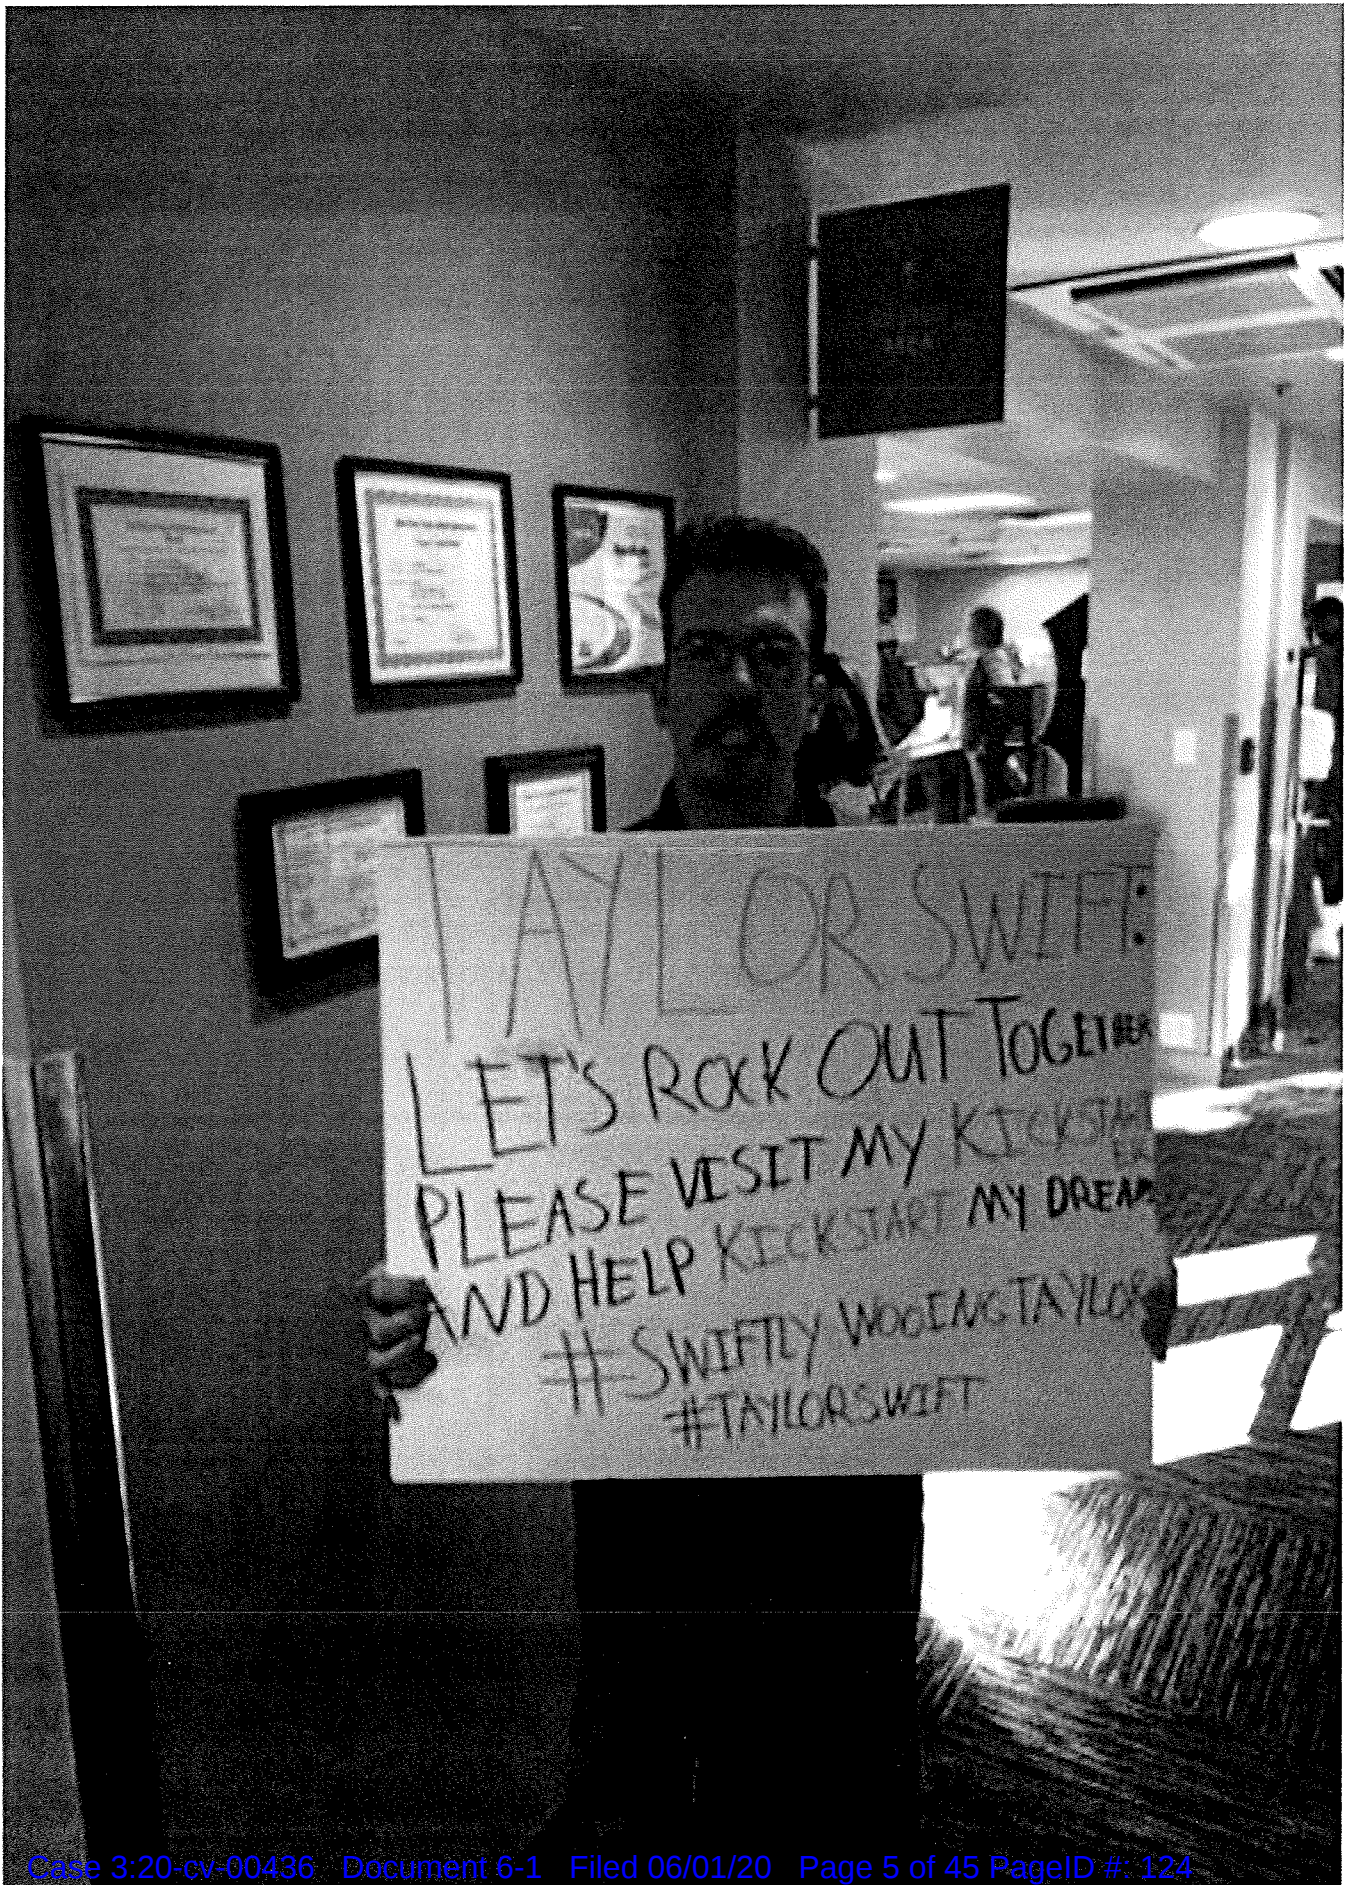 TAYLOR SWIFT:
LET'S ROCK OUT TOGETHER
PLEASE VISIT MY
AND HELP KICKSTART MY DREAM
#SWIFTLY WOOING TAYLOR
#TAYLORSWIFT
Case 3:20-cv-00436 Document 6-1 Filed 06/01/20 Page 5 of 45 PageID #: 124